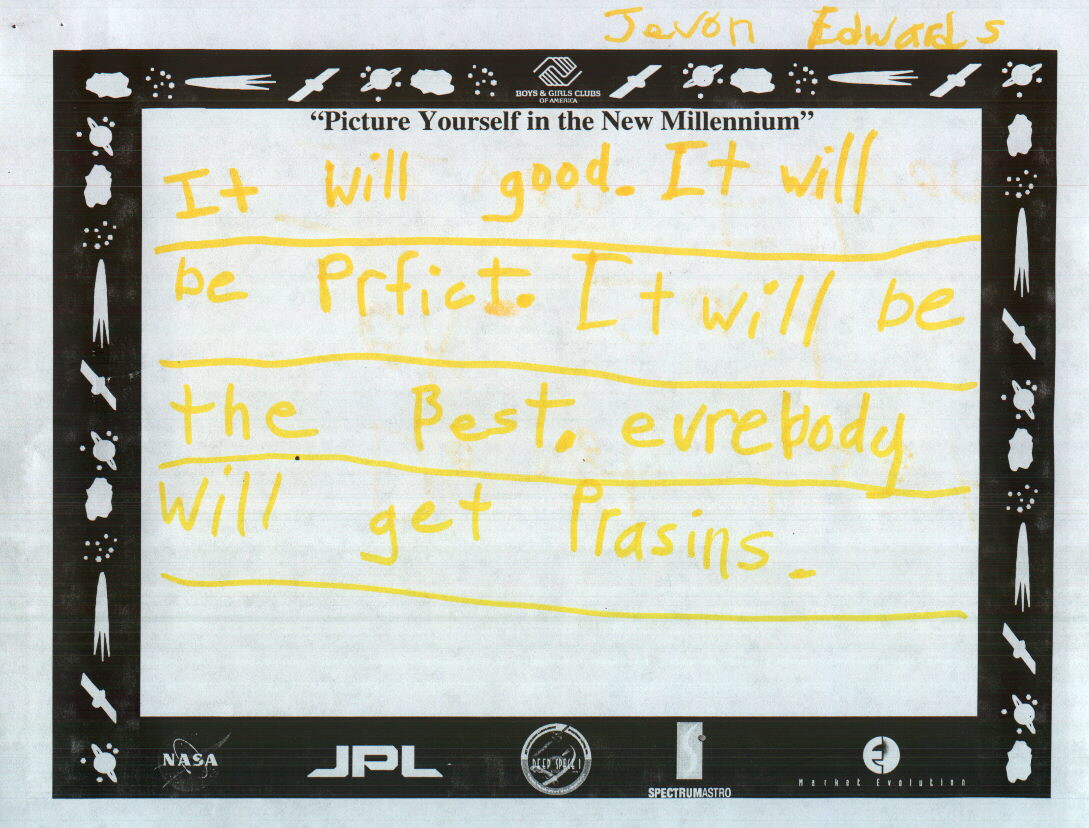 Jevon Edwards
BOYS & GIRLS CLUBS
OF AMERICA
“Picture Yourself in the New Millennium”
It will good. It will
be Prfict. It will be
the Best. evrebody
will get Prasins.
NASA
JPL
DEEP SPACE 1
SPECTRUMASTRO
Market Evolution